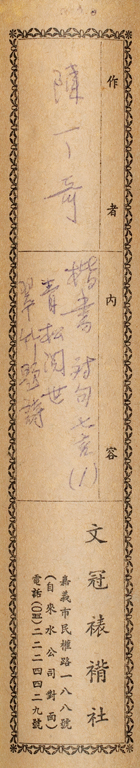 作者
陳丁奇
內容
楷書 詩句七言(1)
青松閱世
翠竹題詩
文冠裱褙社
嘉義市民權路一八八號
(自來水公司對面)
電話(〇五)二二二四四二九號